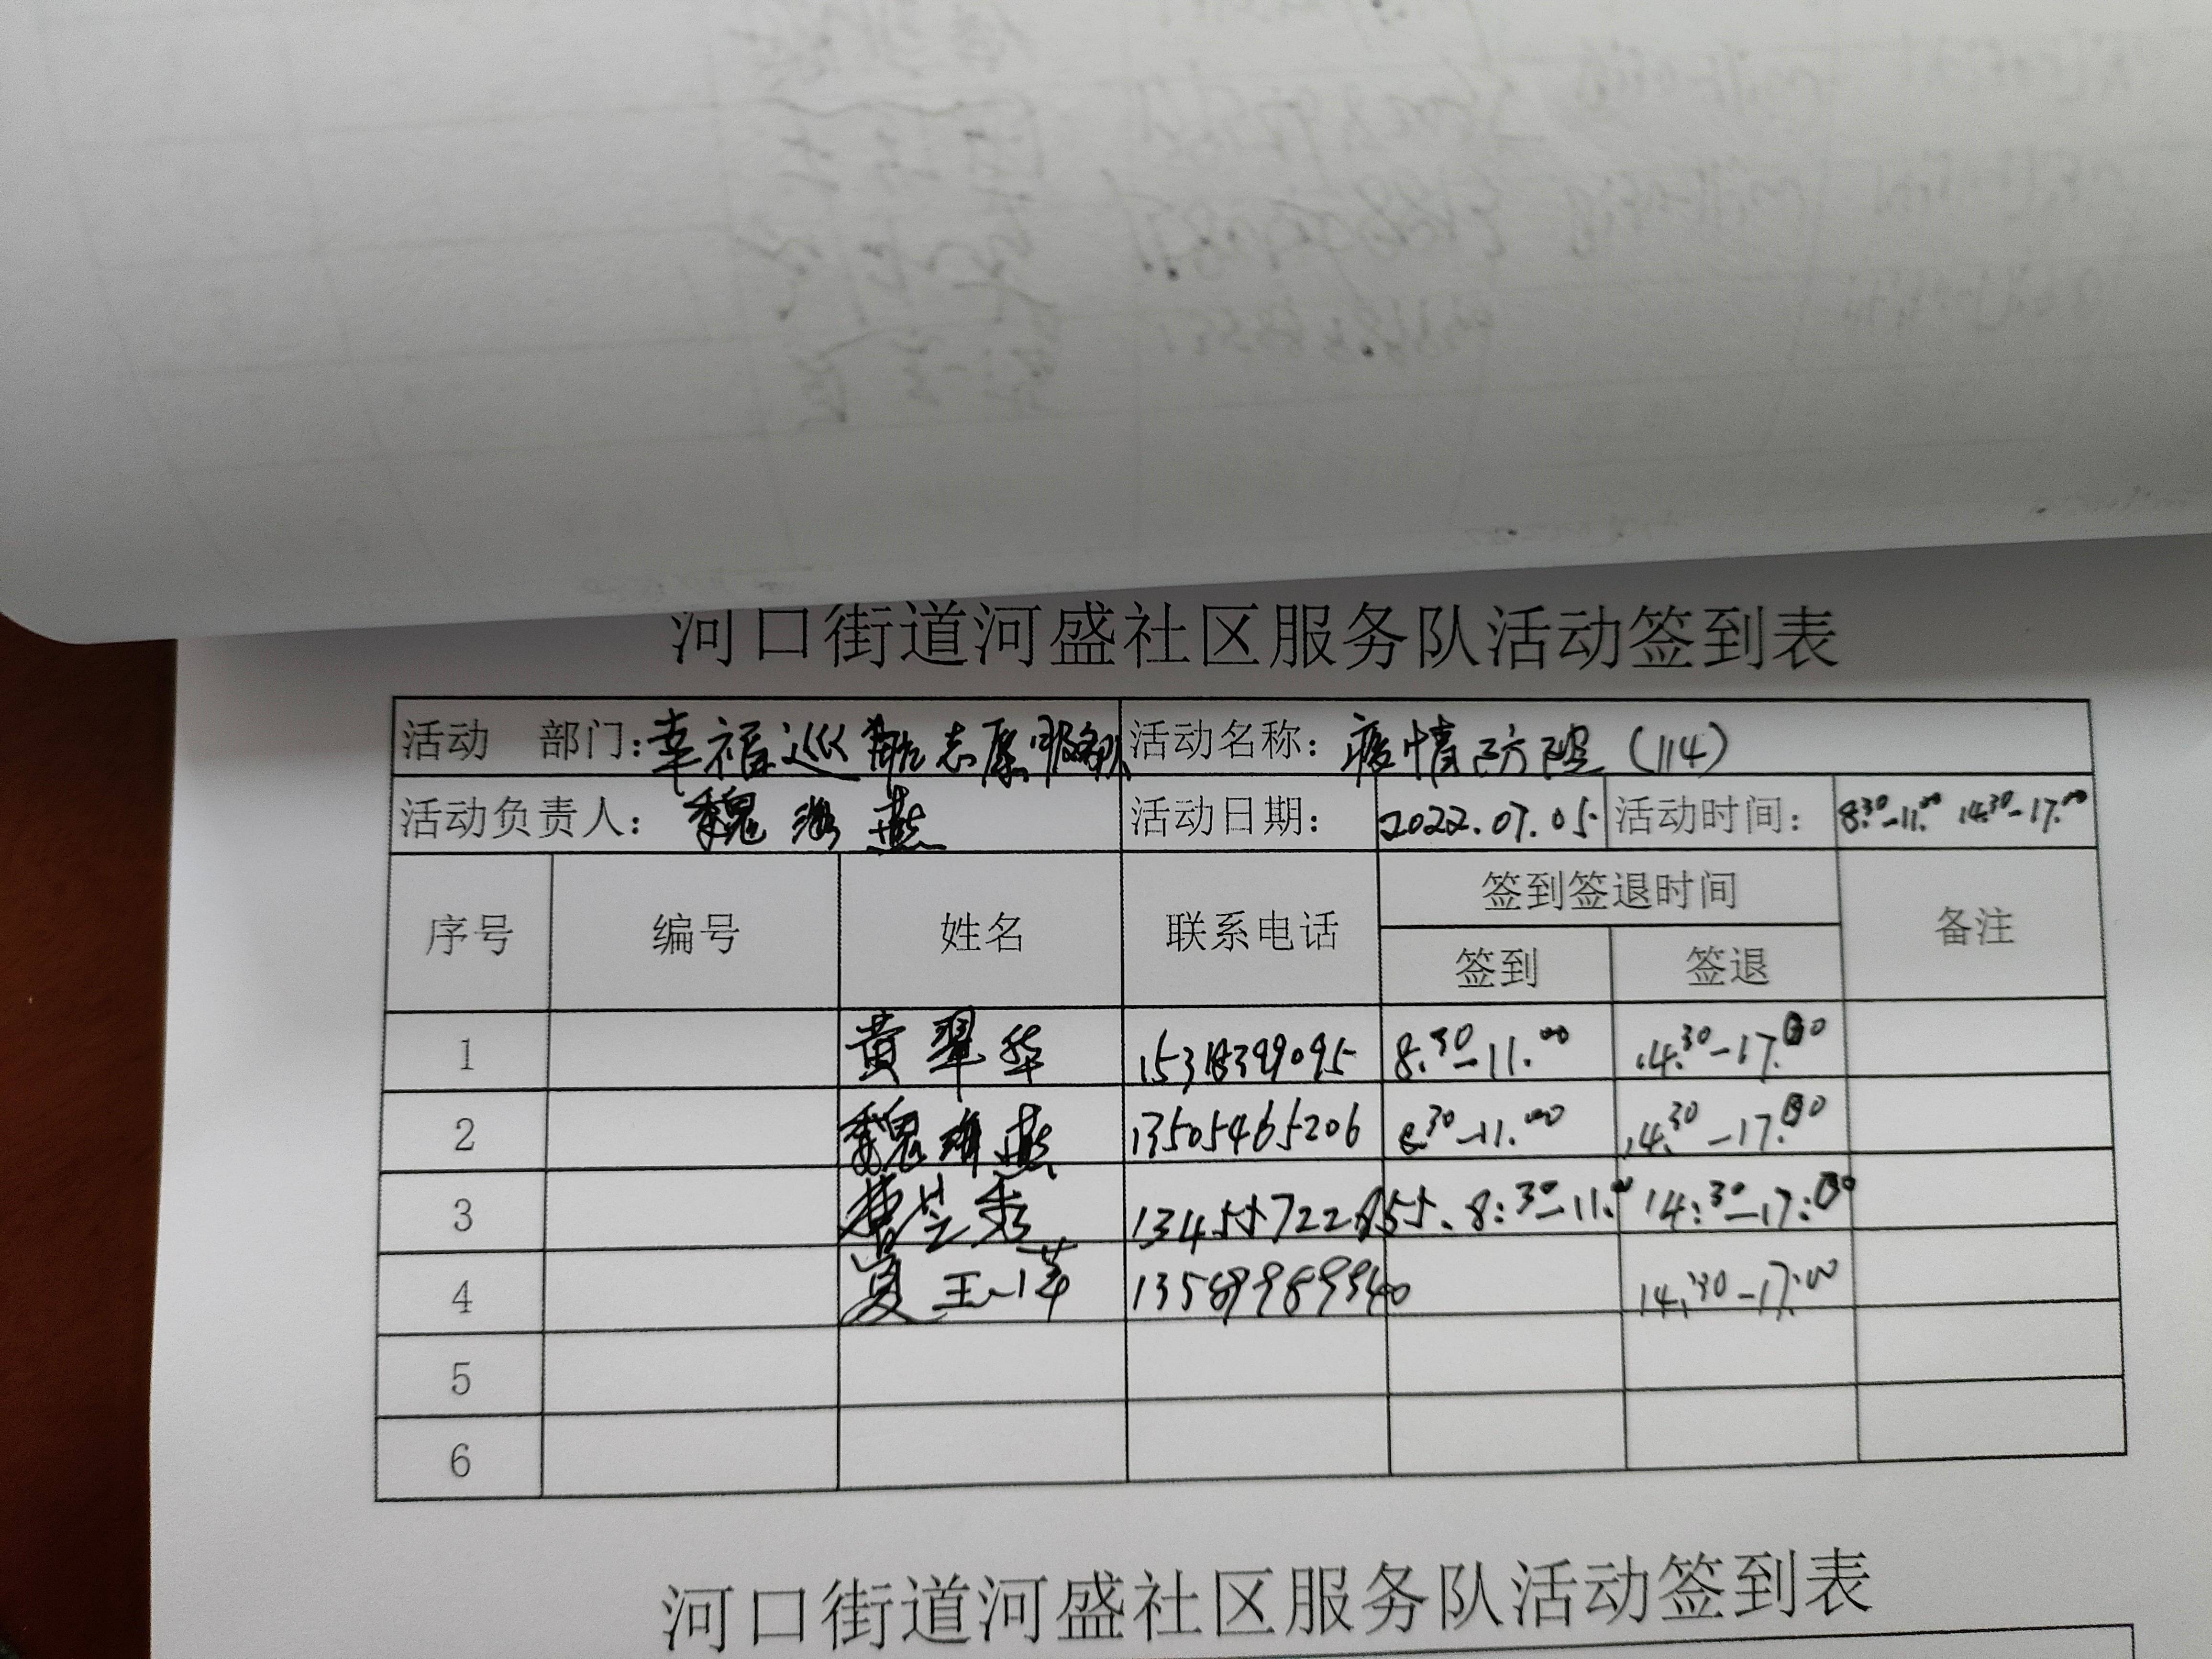 河口街道河盛社区服务队活动签到表
活动 部门:幸福巡航志愿服务队 活动名称: 疫情防控(114)
活动负责人: 魏海燕 活动日期: 2022.07.05 活动时间: 8:30-11:00 14:30-17:00
序号 编号 姓名 联系电话 签到签退时间 备注
签到 签退
1 黄翠华 15318399095 8:30-11:00 14:30-17:00
2 魏海燕 13505465206 8:30-11:00 14:30-17:00
3 芝秀 8:30-11:00 14:30-17:00
4 夏玉萍 14:30-17:00
5
6
河口街道河盛社区服务队活动签到表